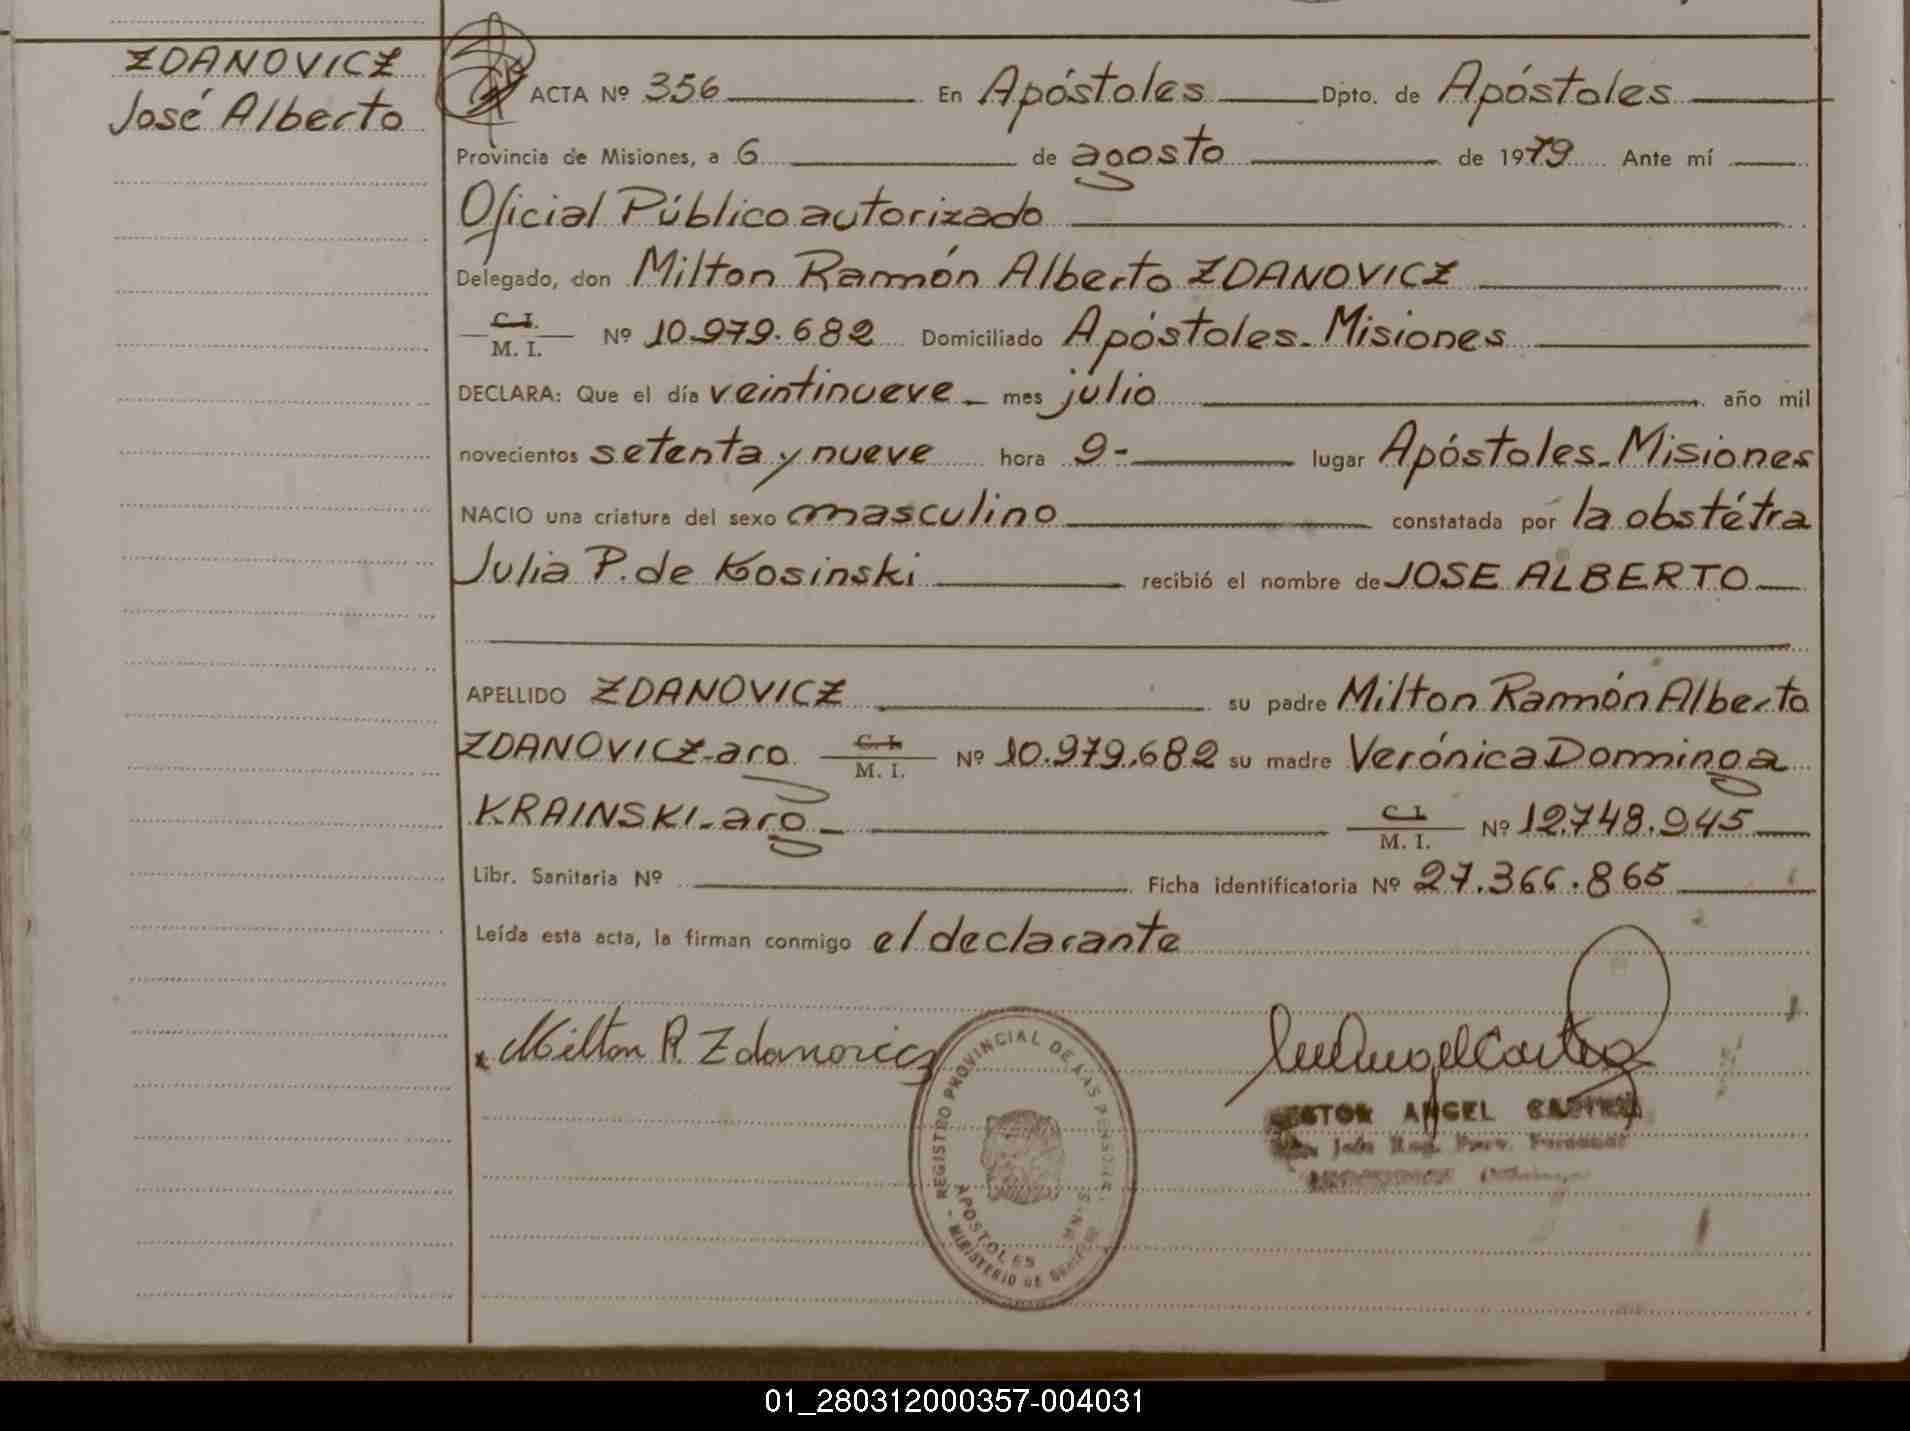 ZDANOVICZ
José Alberto
ACTA Nº 356 En Apóstoles Dpto. de Apóstoles
Provincia de Misiones, a 6 de agosto de 1979 Ante mí
Oficial Público autorizado
Delegado, don Milton Ramón Alberto ZDANOVICZ
C. I.
M. I. Nº 10.979.682 Domiciliado Apóstoles_Misiones
DECLARA: Que el día veintinueve_ mes julio año mil
novecientos setenta y nueve hora 9- lugar Apóstoles_Misiones
NACIO una criatura del sexo masculino constatada por la obstétra
Julia P. de Kosinski recibió el nombre de JOSE ALBERTO
APELLIDO ZDANOVICZ su padre Milton Ramón Alberto
ZDANOVICZ-arg. C. I.
M. I. Nº 10.979.682 su madre Verónica Dominga
KRAINSKI-arg_ C. I.
M. I. Nº 12.748.945
Libr. Sanitaria Nº Ficha identificatoria Nº 27.366.865
Leída esta acta, la firman conmigo el declarante
Milton R. Zdanovicz
REGISTRO PROVINCIAL DE LAS PERSONAS
APOSTOLES
MINISTERIO DE
ANGEL
01_280312000357-004031